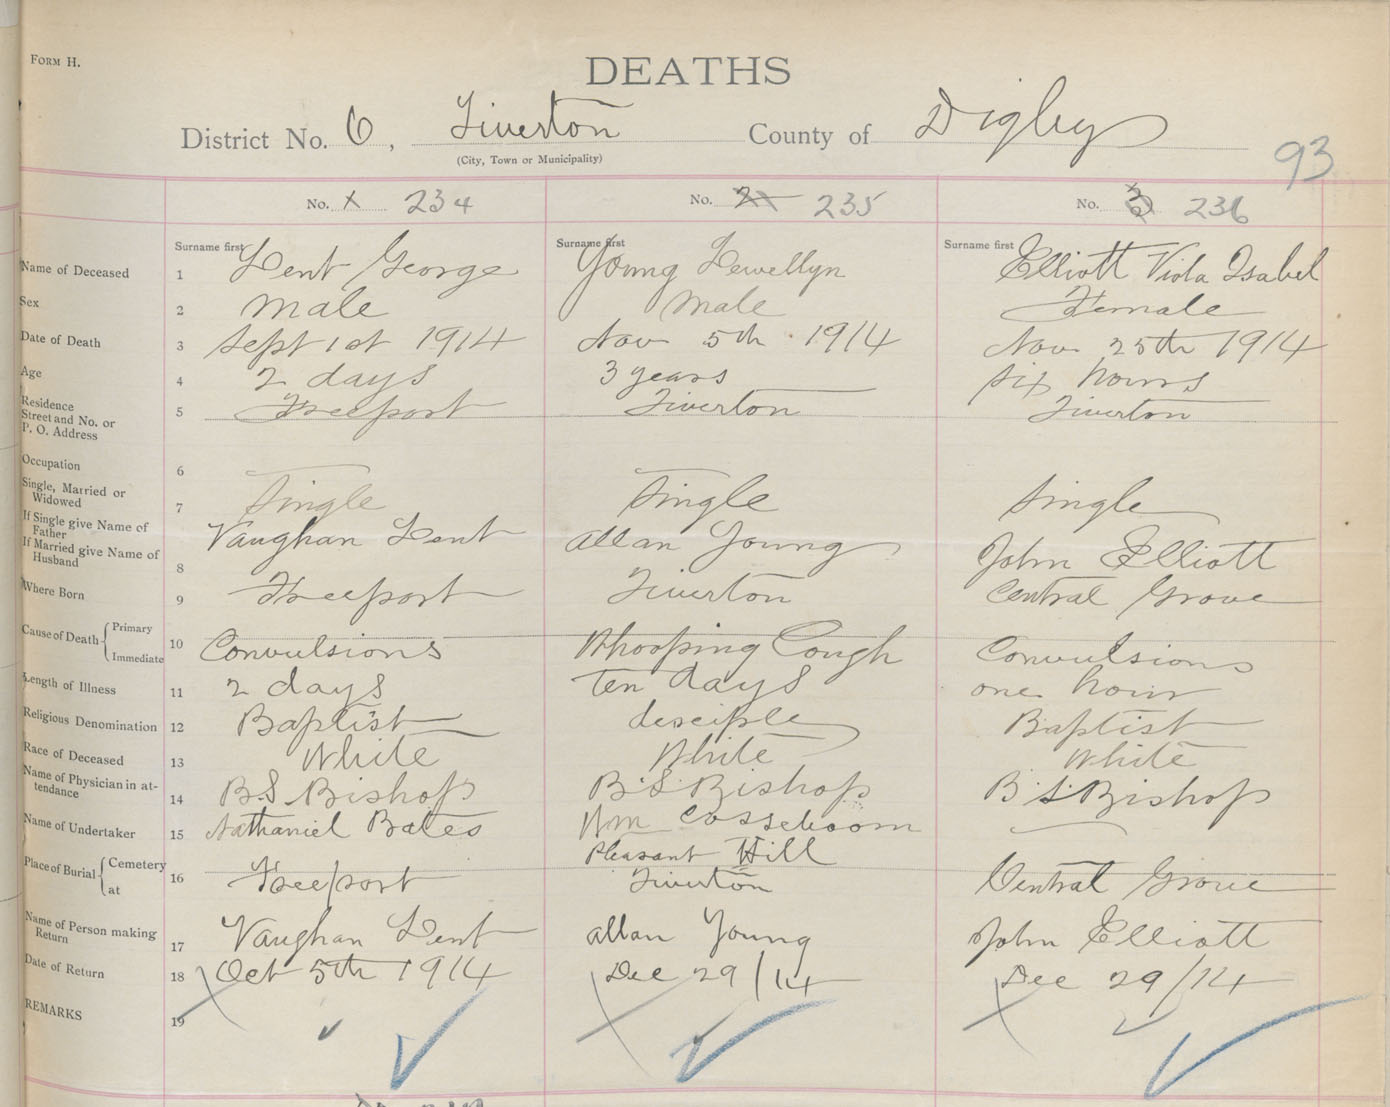 FORM H.
DEATHS
District No. 6, Tiverton County of Digby
(City, Town or Municipality)
93
No. 1 234 No. 2 235 No. 3 236
Surname first Surname first Surname first
Name of Deceased 1 Lent George Young Lewellyn Elliott Viola Isabel
Sex 2 Male Male Female
Date of Death 3 Sept 1st 1914 Nov 5th 1914 Nov 25th 1914
Age 4 2 days 3 years six hours
Residence
Street and No. or
P. O. Address 5 Freeport Tiverton Tiverton
Occupation 6
Single, Married or
Widowed 7 Single Single Single
If Single give Name of
Father
If Married give Name of
Husband 8 Vaughan Lent Allan Young John Elliott
Where Born 9 Freeport Tiverton Central Grove
Cause of Death { Primary
Immediate 10 Convulsions Whooping Cough Convulsions
Length of Illness 11 2 days ten days one hour
Religious Denomination 12 Baptist desciple Baptist
Race of Deceased 13 White White White
Name of Physician in at-
tendance 14 B.S. Bishop B.S. Bishop B.S. Bishop
Name of Undertaker 15 Nathaniel Bates Wm Cosseboom
Place of Burial { Cemetery Pleasant Hill
at 16 Freeport Tiverton Central Grove
Name of Person making
Return 17 Vaughan Lent Allan Young John Elliott
Date of Return 18 Oct 5th 1914 Dec 29/14 Dec 29/14
REMARKS 19